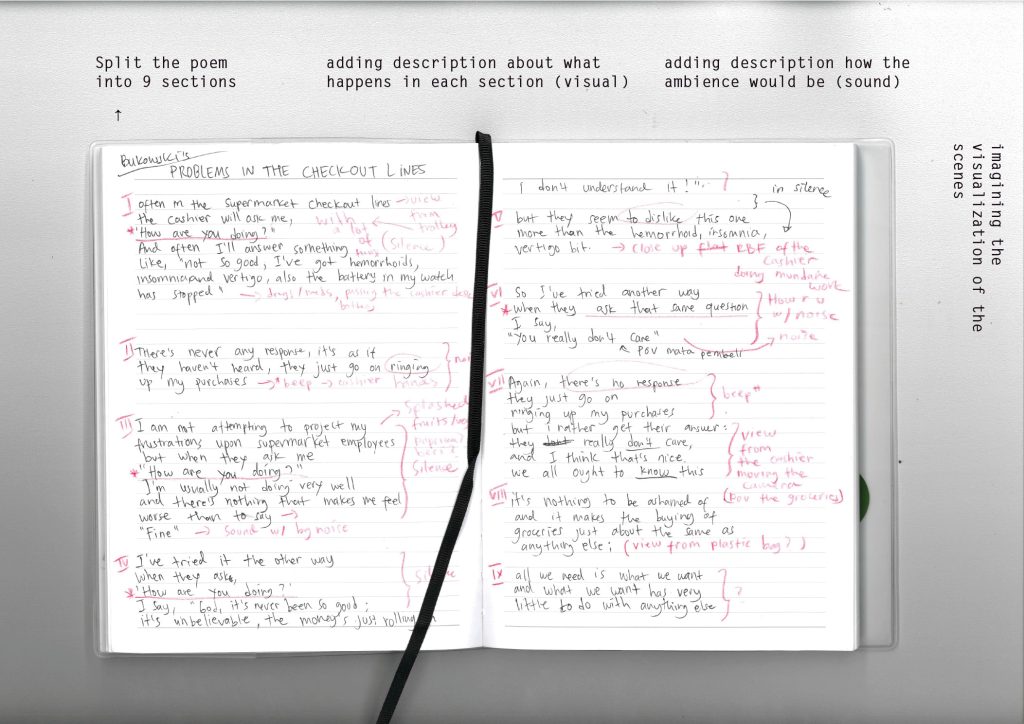 Split the poem
into 9 sections
↑
adding description about what
happens in each section (visual)
adding description how the
ambience would be (sound)
imagining the
visualization of the
scenes
Bukowski's
PROBLEMS IN THE CHECKOUT LINES
I often in the supermarket checkout lines → view from trolley
the cashier will ask me,
* "How are you doing?" with a lot of
And often I'll answer something (silence)
like, "not so good, I've got hemorrhoids,
insomnia and vertigo, also the battery in my watch
has stopped" → drugs/meds, passing the cashier
II There's never any response, it's as if
they haven't heard, they just go on ringing
up my purchases → *beep → cashier hands
III I am not attempting to project my
frustrations upon supermarket employees
but when they ask me
* "How are you doing?"
I'm usually not doing very well
and there's nothing that makes me feel
worse than to say →
"Fine" → sound w/ bg noise
splashed
fruits/veg
Silence
IV I've tried it the other way
when they ask,
* 'How are you doing?'
I say, "God, it's never been so good;
it's unbelievable, the money's just rolling in
Silence
I don't understand it!"
in silence
V but they seem to dislike this one
more than the hemorrhoid, insomnia,
vertigo bit. → close up RBF of the
cashier
doing mundane
work
VI So I've tried another way
* when they ask that same question
I say,
"You really don't care"
How r u
w/ noise
→ noise
↖ POV mata pembeli
VII Again, there's no response
they just go on
ringing up my purchases
beep*
but I rather get their answer:
they really don't care,
and I think that's nice.
we all ought to know this
view
from
the cashier
moving the
camera
(pov the groceries)
VIII it's nothing to be ashamed of
and it makes the buying of
groceries just about the same as
anything else; (view from plastic bag?)
IX all we need is what we want
and what we want has very
little to do with anything else
?